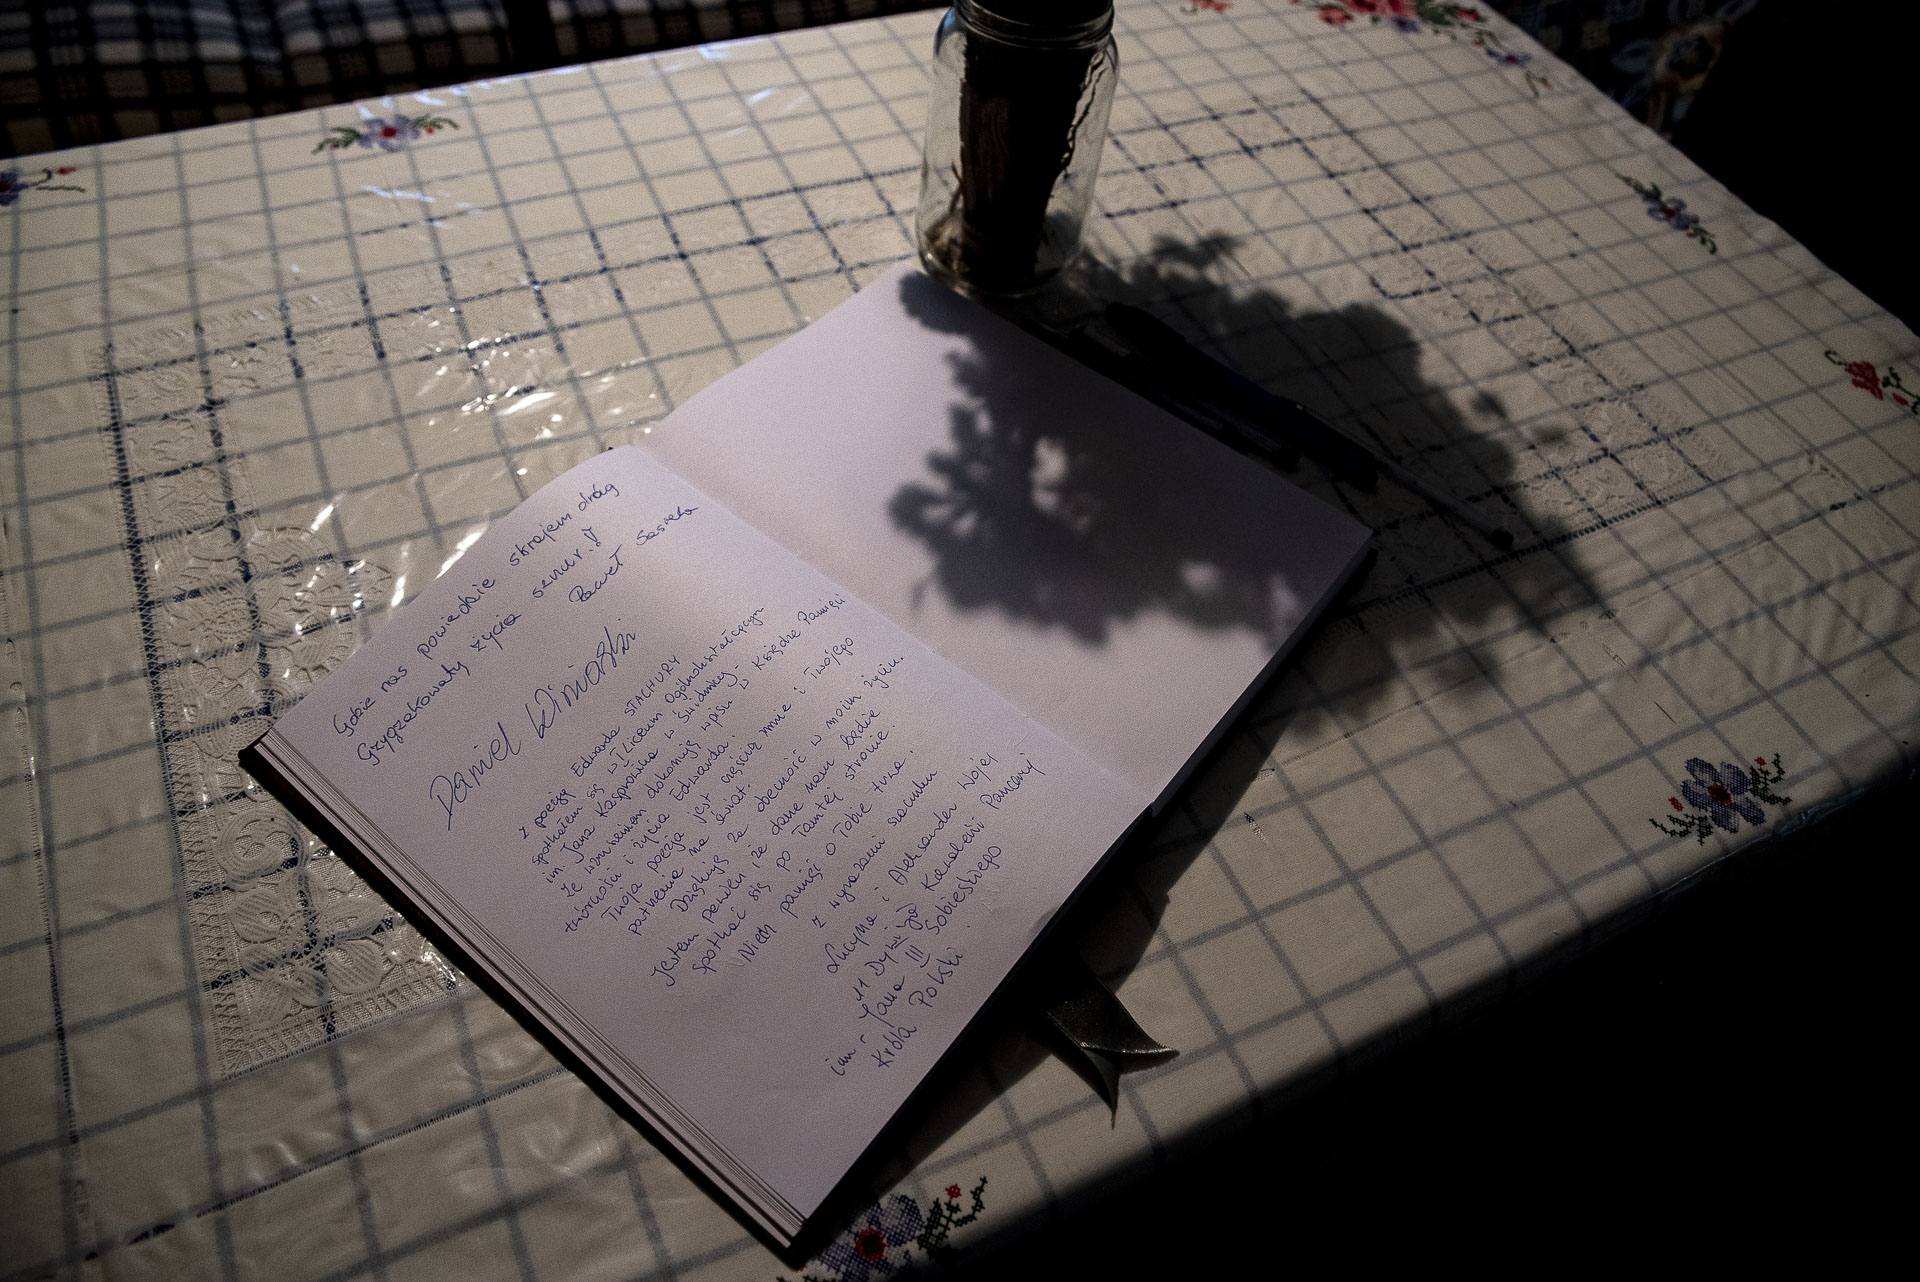 Gdzie nas powiedzie skrajem dróg
Gzygzakowaty życia sznur.!
Paweł Sasseka
Daniel Winiarski
z poezją Edwarda STACHURY
spotkałem się w I Liceum Ogólnokształcącym
im. Jana Kasprowicza w Świdnicy -
że wzruszeniem dokonuję wpisu w Księdze Pamięci
twórczości i życia Edwarda.
Twoja poezja jest częścią mnie i Twojego
patrzenia na świat.
Dziękuję za obecność w moim życiu.
Jestem pewien, że dane nam będzie
spotkać się po Tamtej stronie.
Niech pamięć o Tobie trwa,
z wyrazami szacunku
Lucyna i Aleksander
11 Kawalerii Pancernej
im. Jana III Sobieskiego
Króla Polski